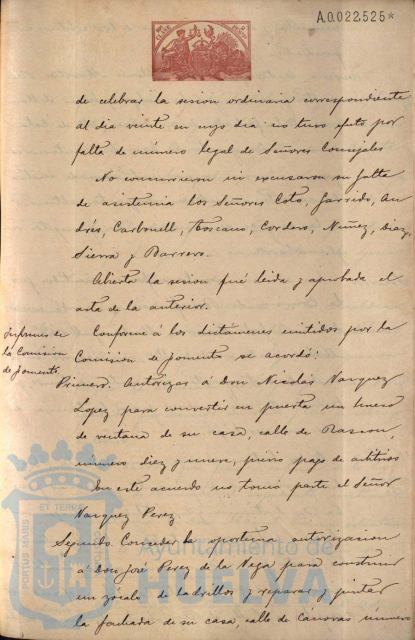 A.0.022.525*
de celebrar la sesion ordinaria correspondiente
al dia veinte en cuyo dia no tuvo efecto por
falta de número legal de Señores Concejales
No concurrieron ni excusaron su falta
de asistencia los Señores Coto, Garrido, An
drés, Carbonell, Toscano, Cordero, Nuñez, Diaz,
Sierra y Barrero.
Abierta la sesion fué leida y aprobada el
acta de la anterior.
Informes de
la Comision
de fomento.
Conforme á los dictámenes emitidos por la
Comision de fomento se acordó:
Primero. Autorizar á Don Nicolás Vazquez
Lopez para convertir en puerta un hueco
de ventana de su casa, calle de Rascon,
número diez y nueve, previo pago de arbitrios
En este acuerdo no tomó parte el Señor
Vazquez Perez.
Segundo. Conceder la oportuna autorizacion
á Don José Perez de la Vega para construir
un zócalo de ladrillos y reparar y pintar
la fachada de su casa, calle de Canovas número
PORTUS MARIS ET TERRE
Ayuntamiento de
HUELVA